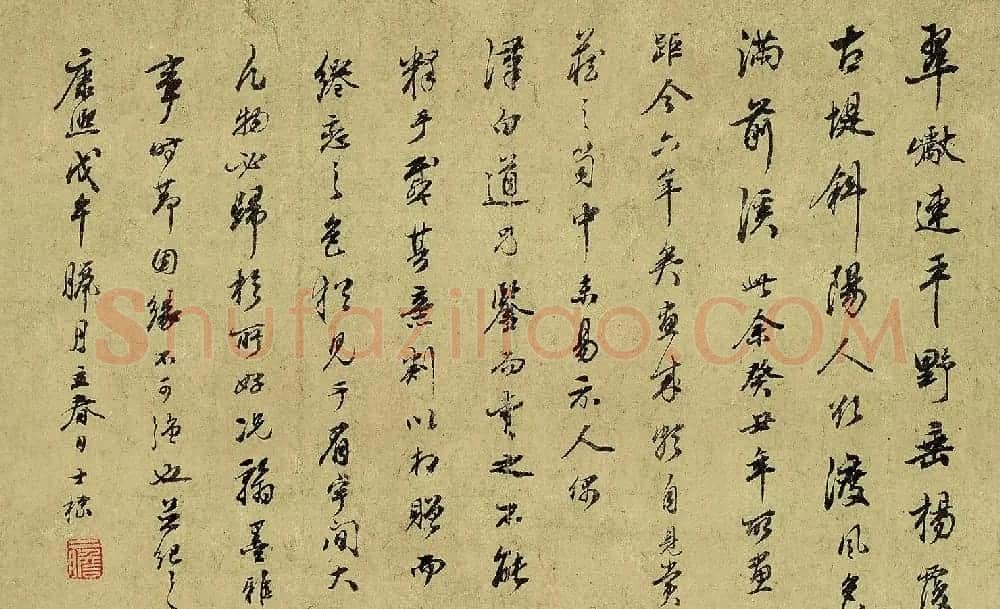 翠巘連平野垂楊覆
古堤斜陽人欲渡風色
滿前溪此余癸丑年所畫
距今六年矣畫成頗自見賞
藏之笥中未易示人偶
澤白道兄鑒而賞之不能
釋手或其意割以相贈而
繾戀之色猶見于眉宇間大
凡物必歸於所好况翰墨雅
事時節因緣不可強也并紀之
康熙戊午臈月立春日士標
Shufaziliao.COM